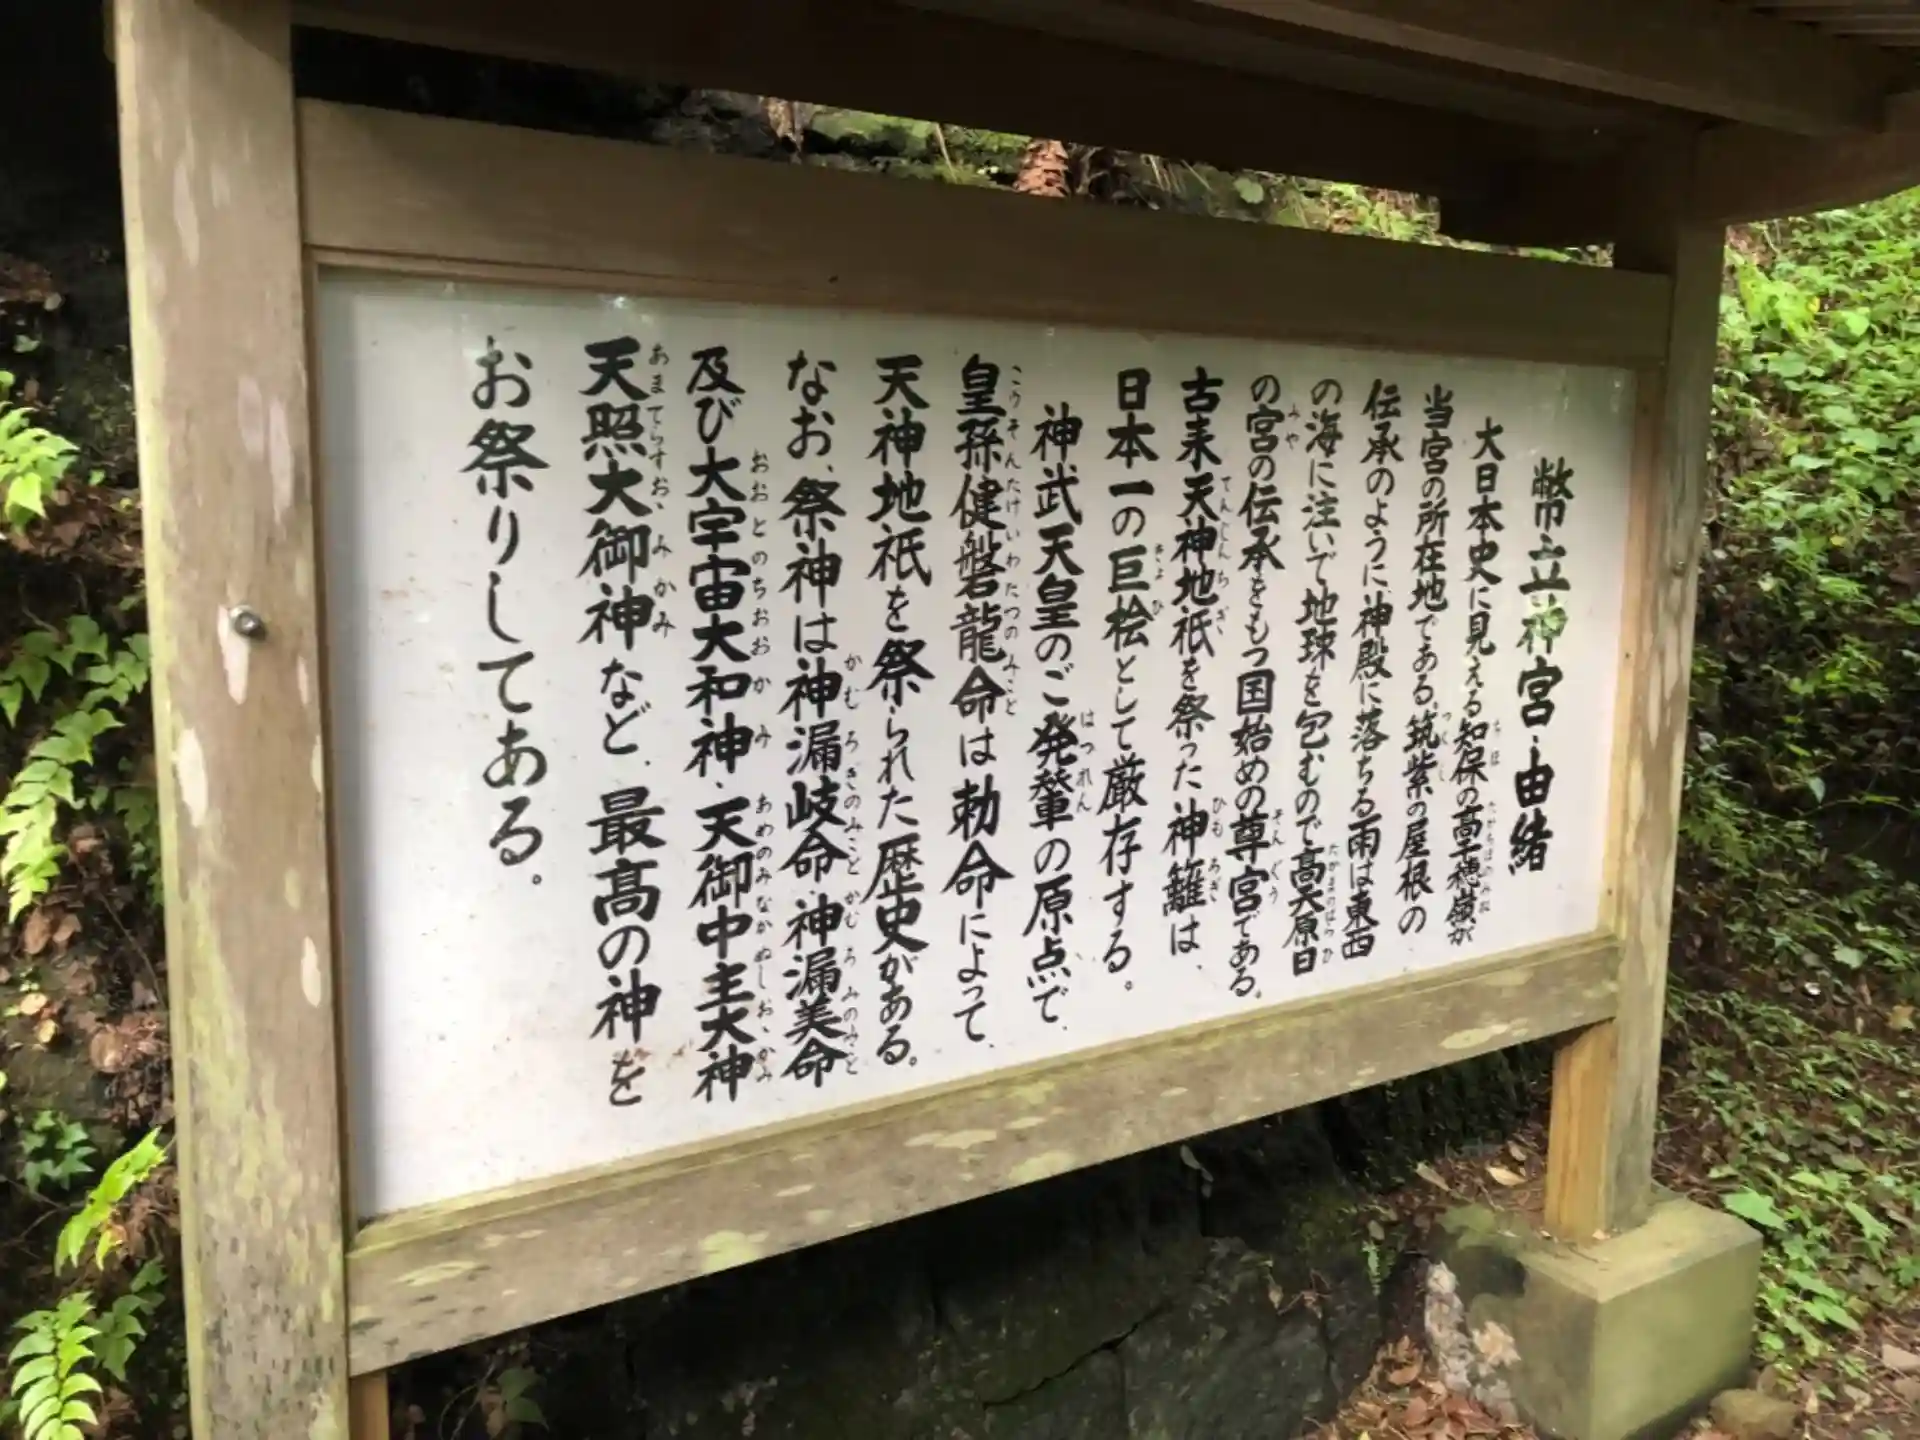 幣立神宮・由緒
大日本史に見える知保の高千穂嶺が
当宮の所在地である。筑紫の屋根の
伝承のように神殿に落ちる雨は東西
の海に注いで地球を包むので高天原日
の宮の伝承をもつ国始めの尊宮である。
古来天神地祇を祭った神籬は、
日本一の巨桧として厳存する。
神武天皇のご発輦の原点で、
皇孫健磐龍命は勅命によって、
天神地祇を祭られた歴史がある。
なお、祭神は神漏岐命・神漏美命
及び大宇宙大和神・天御中主大神
天照大御神など、最高の神を
お祭りしてある。